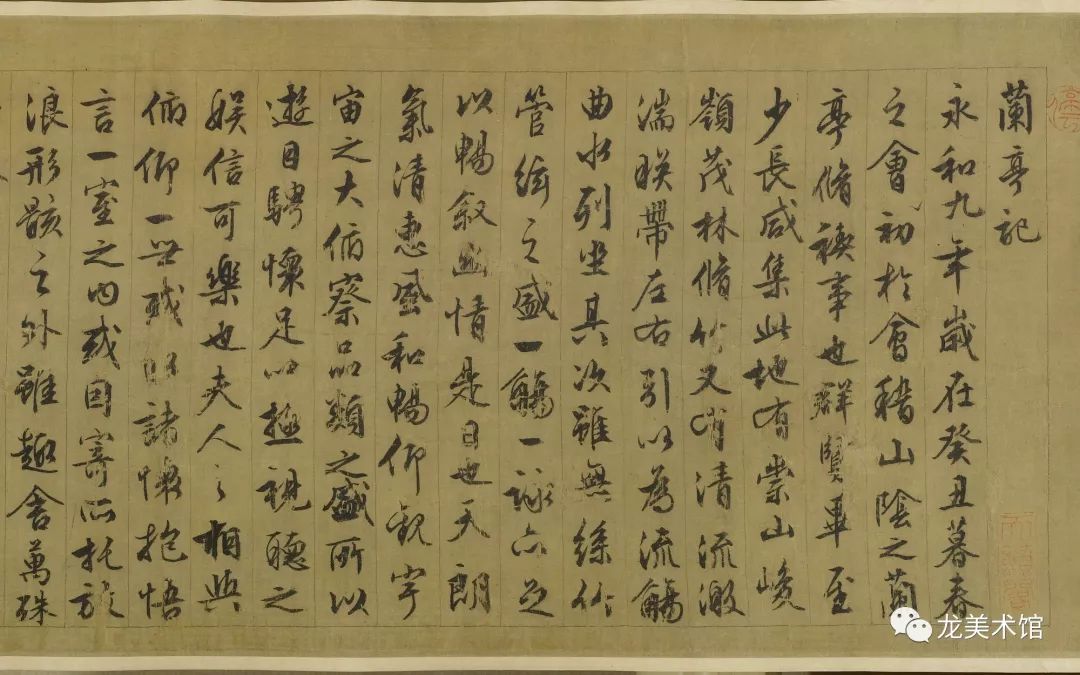 蘭亭記
永和九年歲在癸丑暮春
之會初於會稽山陰之蘭
亭脩禊事也群賢畢至
少長咸集此地有崇山峻
嶺茂林脩竹又有清流激
湍暎帶左右引以為流觴
曲水列坐其次雖無絲竹
管絃之盛一觴一詠亦足
以暢敘幽情是日也天朗
氣清惠風和暢仰觀宇
宙之大俯察品類之盛所以
遊目騁懷足以極視聽之
娛信可樂也夫人之相與
俯仰一世或取諸懷抱悟
言一室之內或因寄所托放
浪形骸之外雖趣舍萬殊
龙美术馆